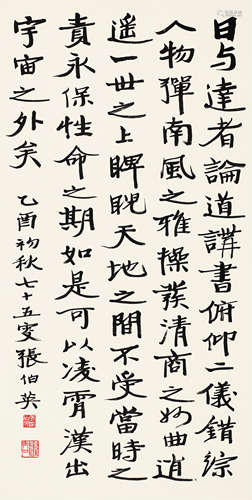 日与達者論道講書俯仰二儀錯綜
人物彈南風之雅操發清商之妙曲逍
遥一世之上睥睨天地之間不受當時之
責永保性命之期如是可以凌霄漢出
宇宙之外矣
乙酉初秋七十五叟張伯英